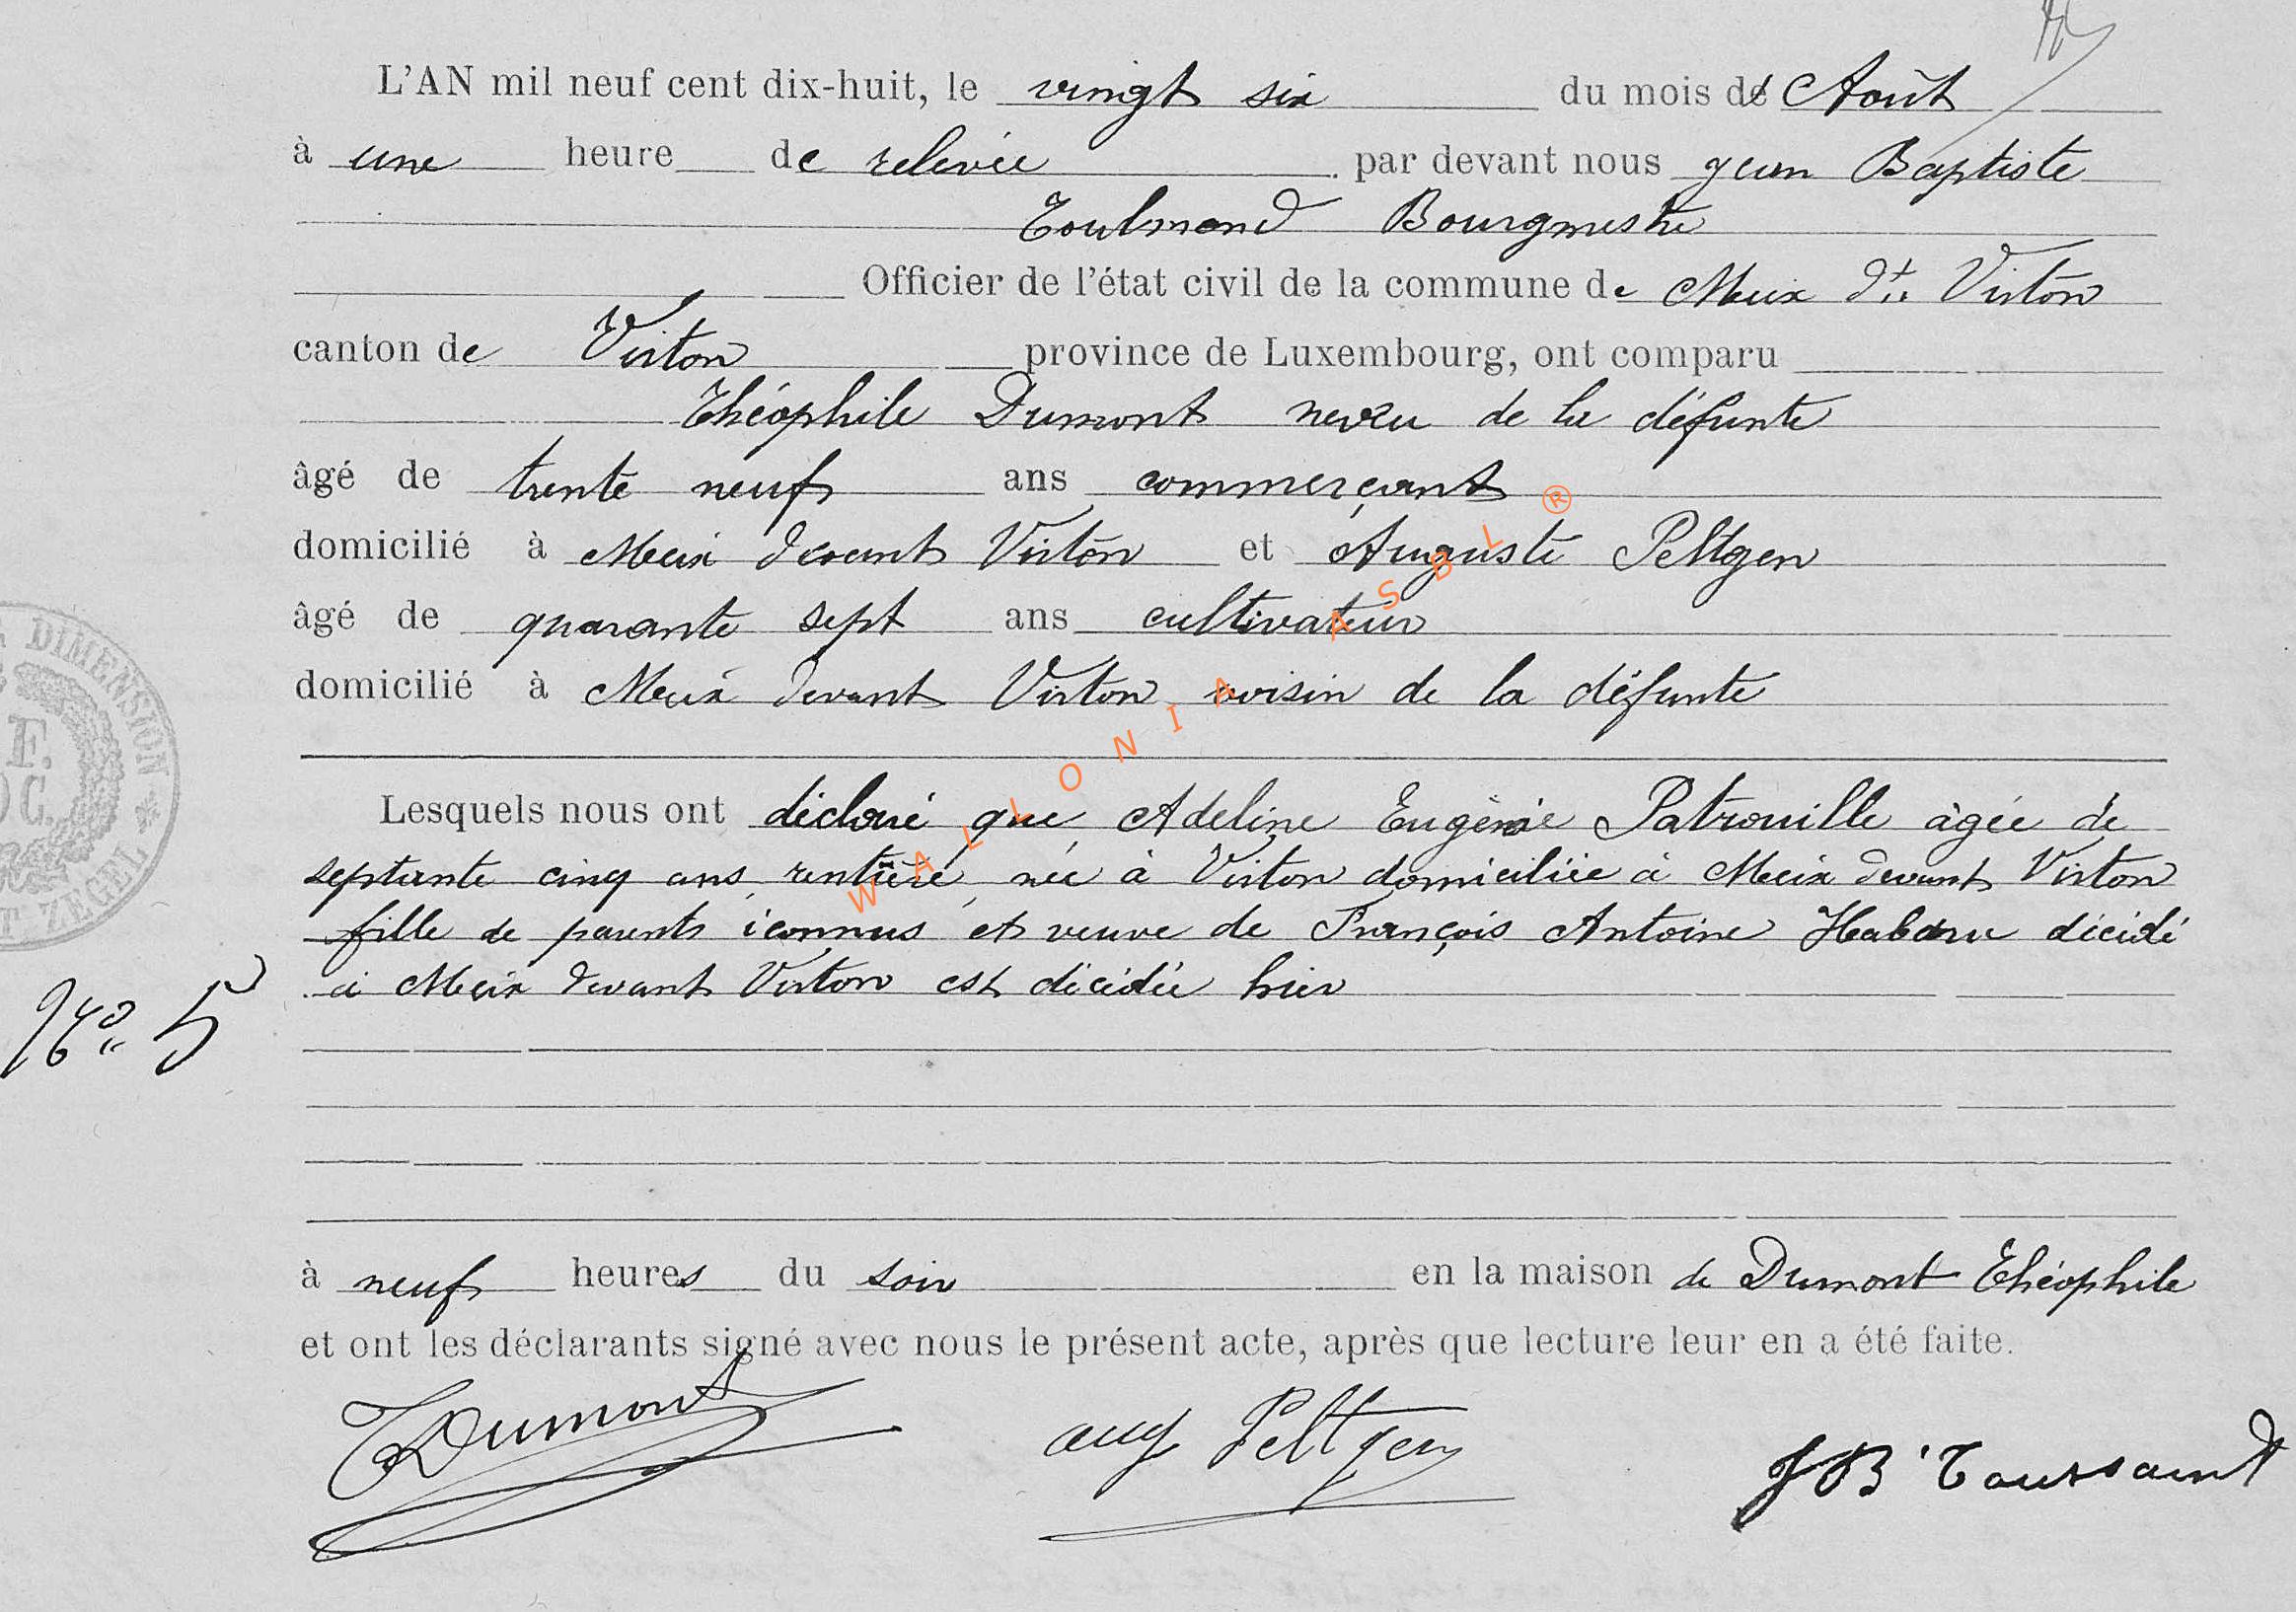 L'AN mil neuf cent dix-huit, le vingt six du mois de Août
à une heure de relevée par devant nous Jean Baptiste
Toulmond Bourgmestre
Officier de l'état civil de la commune de Meix dt Virton
canton de Virton province de Luxembourg, ont comparu
Théophile Dumont neveu de la défunte
âgé de trente neuf ans commerçant
domicilié à Meix devant Virton et Auguste Peltgen
âgé de quarante sept ans cultivateur
domicilié à Meix devant Virton, voisin de la défunte
Lesquels nous ont déclaré que Adeline Eugènie Patrouille âgée de
septante cinq ans, rentière, née à Virton domiciliée à Meix devant Virton
fille de parents iconnus et veuve de François Antoine Habaru décédé
à Meix devant Virton est décédée hier
No 5
à neuf heures du soir en la maison de Dumont Théophile
et ont les déclarants signé avec nous le présent acte, après que lecture leur en a été faite.
TDumont aug Peltgen JB Toussaint
DIMENSION
ZEGEL
WALLONIA ASBL ®